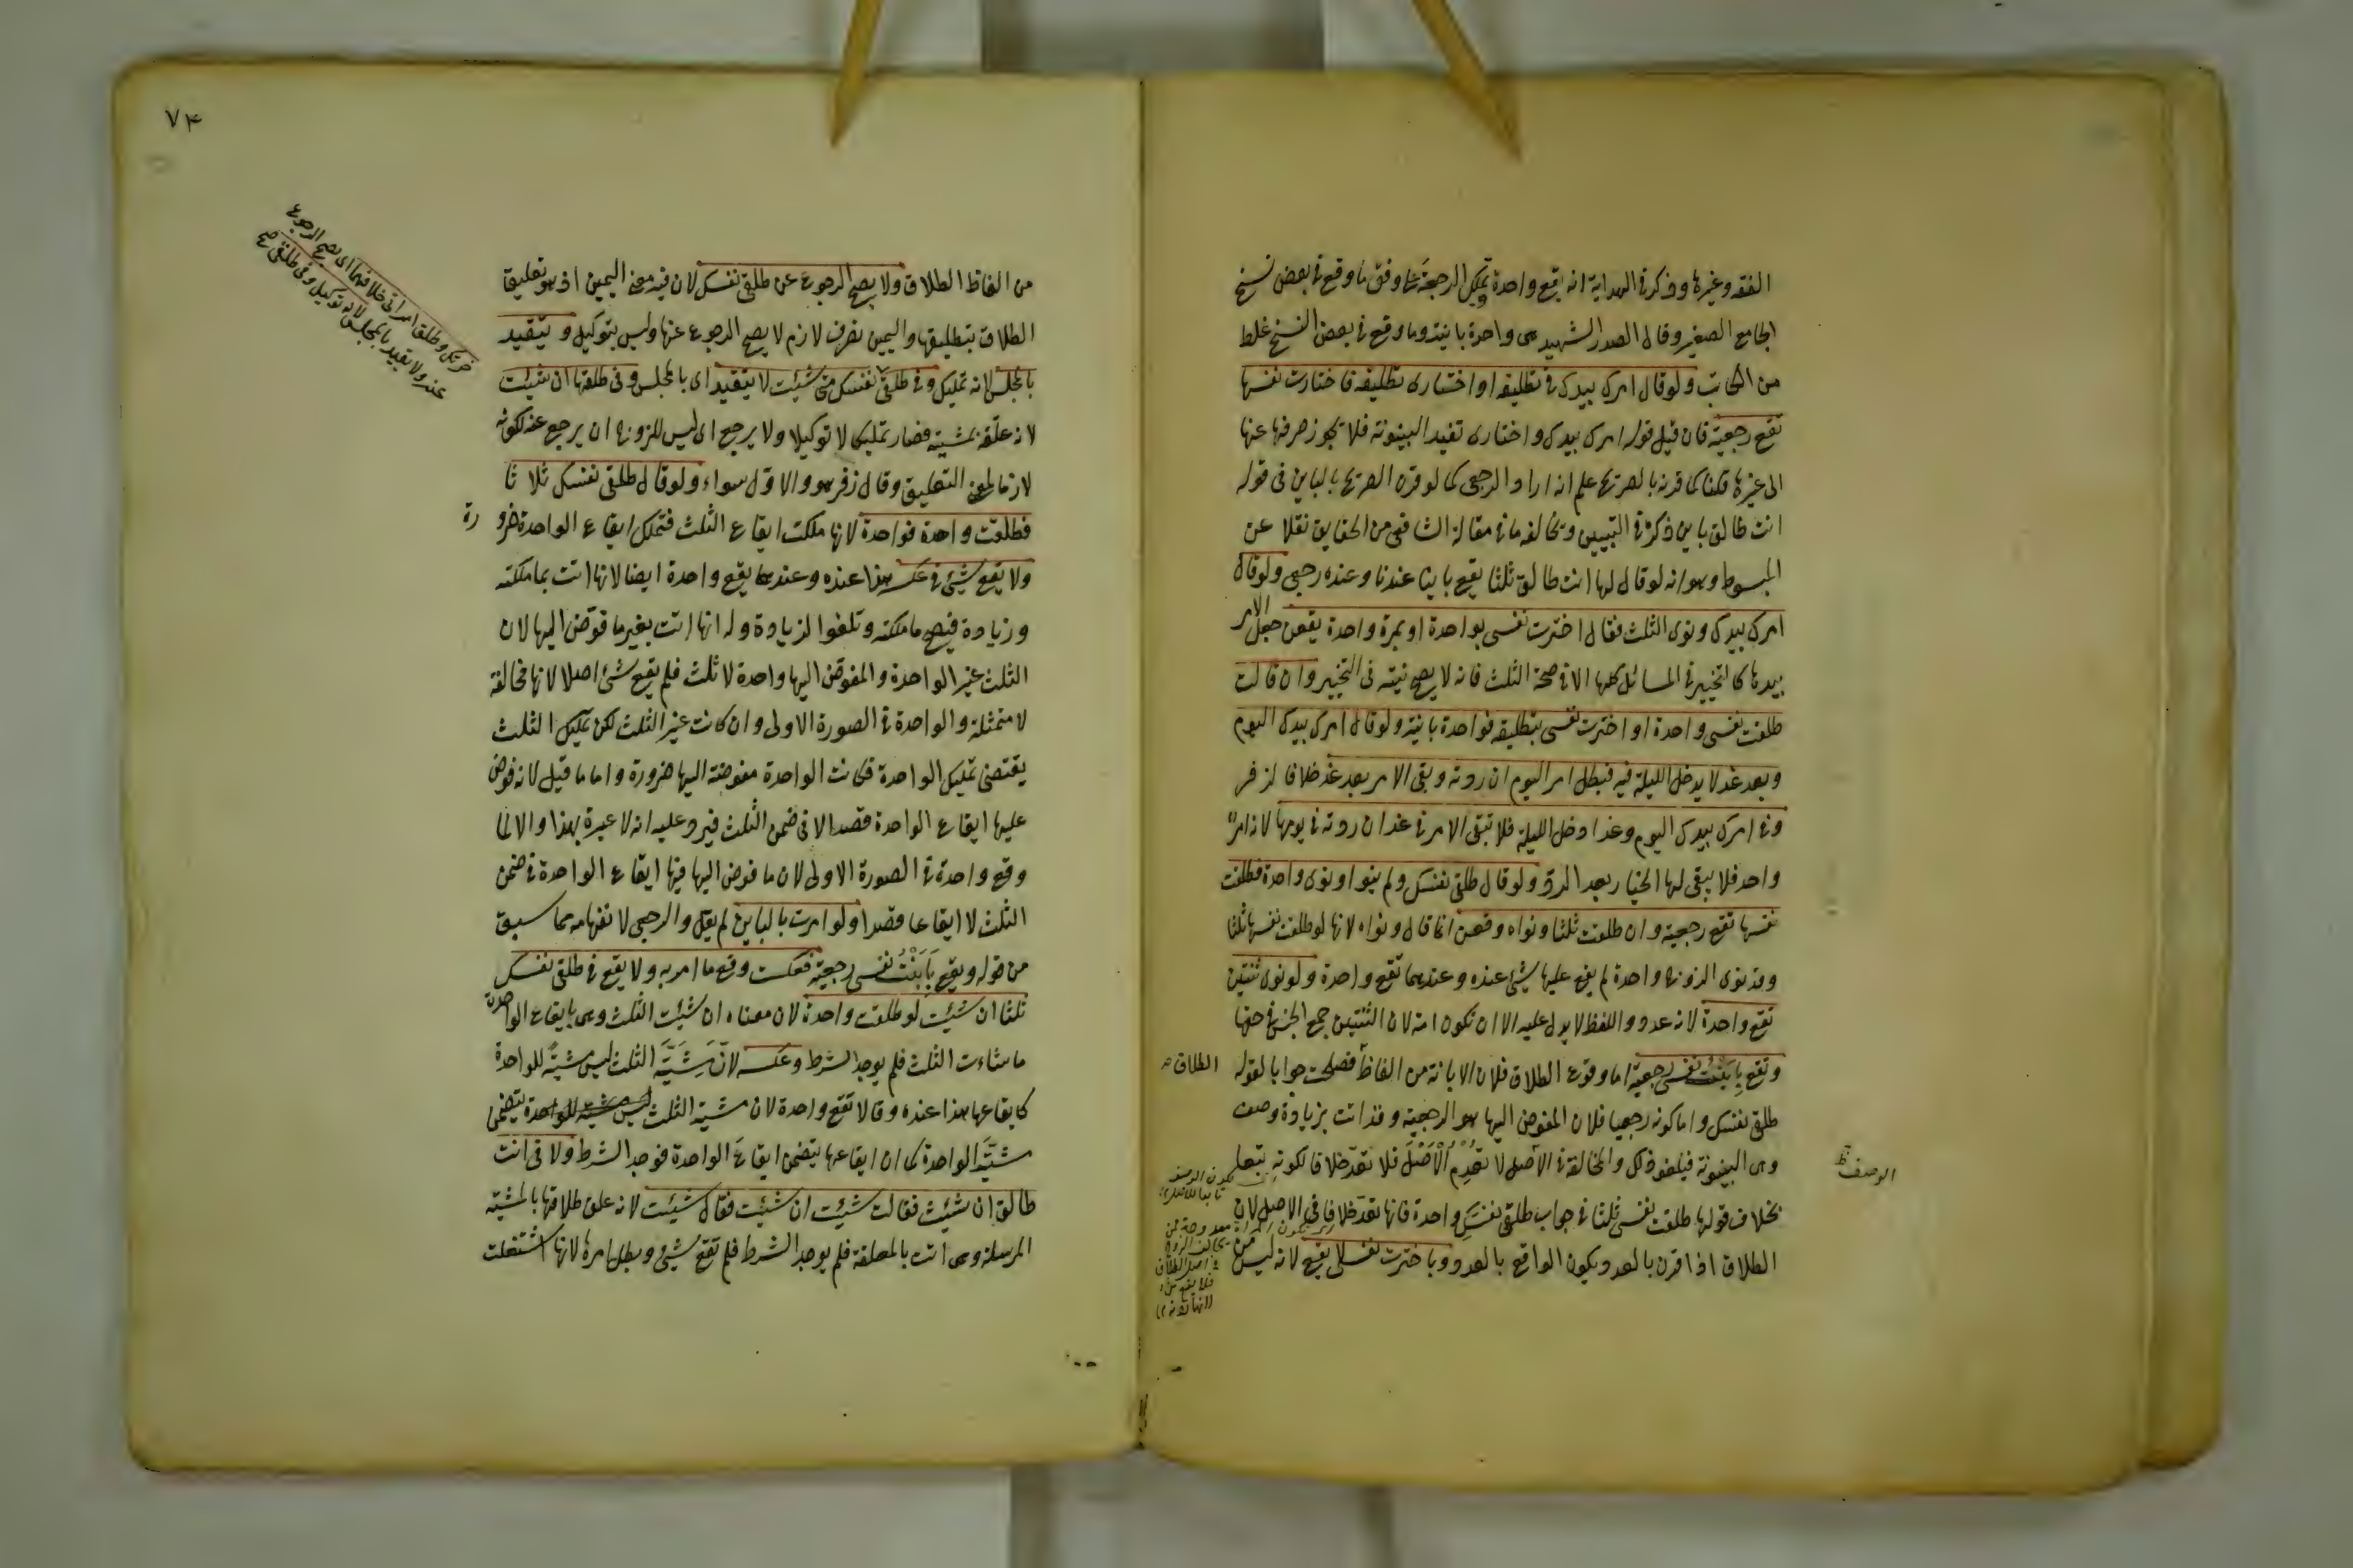 الفقه وغيرها وذكر في الهداية انه يقع واحدة تملك الرجعة على وفق ما وقع في بعض نسخ
الجامع الصغير وقال الصدر الشهيد هى واحدة باينة وما وقع في بعض النسخ غلط
من الكاتب ولو قال امرك بيدك في تطليقة او اختارى تطليقة فاختارت نفسها
تقع رجعية فان قيل قوله امرك بيدك واختارى تفيد البينونة فلا يجوز صرفها عنها
الى غيرها قلنا لما قرنه بالصريح علم انه اراد الرجعى كما لو قرن الصريح بالباين فى قوله
انت طالق باين ذكره في التبيين ويخالفه ما في مقالة الشافعى من الحقايق نقلا عن
المبسوط وهو انه لو قال لها انت طالق ثلثا يقع باينا عندنا وعنده رجعى ولو قال
امرك بيدك ونوى الثلث فقال اخترت نفسى بواحدة او بمرة واحدة يقعن جعل الامر
بيدها كالتخيير في المسائل كلها الا في صحة الثلث فانه لا يصح نيته فى التخيير وان قالت
طلقت نفسى واحدة او اخترت نفسى بتطليقة فواحدة باينة ولو قال امرك بيدك اليوم
وبعد غد لا يدخل الليلة فيه فبطل امر اليوم ان ردته وبقى الامر بعد غد خلافا لزفر
وفي امرك بيدك اليوم وغدا دخل الليلة فلا تبقى الامر في غد ان ردته في يومها لانه امر
واحد فلا يبقى لها الخيار بعد الرد ولو قال طلقى نفسك ولم ينو او نوى واحدة فطلقت
نفسها تقع رجعية وان طلقت ثلثا ونواه وقعن انما قال ونواه لانها لو طلقت نفسها ثلثا
وقد نوى الزوج واحدة لم يقع عليها شيئ عنده وعندهما تقع واحدة ولو نوى ثنتين
تقع واحدة لانه عدد واللفظ لا يدل عليه الا ان تكون امة لان الثنتين جمع الجنس في حقها
وتقع بابنت نفسى رجعية اما وقوع الطلاق فلان الابانة من الفاظ فصلحت جوابا لقوله
الطلاق
طلقى نفسك واما كونه رجعيا فلان المفوض اليها هو الرجعية وقد اتت بزيادة وصف
وهى البينونة فيلغو ذلك والمخالفة في الاصل لا تعدم الاصل فلا تعد خلافا لكونه تبعا
الوصف
بخلاف قولها طلقت نفسى ثلثا في جواب طلقى نفسك واحدة فانها تعد خلافا فى الاصل لان
الطلاق اذا قرن بالعدد يكون الواقع بالعدد وباخترت نفسى لا يقع لانه ليس من
٧٤
من الفاظ الطلاق ولا يصح الرجوع عن طلقى نفسك لان فيه معنى اليمين اذ هو تعليق
الطلاق بتطليقها واليمين تصرف لازم لا يصح الرجوع عنها وليس بتوكيل ويتقيد
بالمجلس لانه تمليك وفى طلقى نفسك متى شئت لا يتقيد اى بالمجلس وفى طلقها ان شئت
لانه علقه بمشيته فصار تمليكا لا توكيلا ولا يرجع اى ليس للزوج ان يرجع عنه لكونه
لازما لمعنى التعليق وقال زفر هو والاول سواء ولو قال طلقى نفسك ثلاثا
فطلقت واحدة فواحدة لانها ملكت ايقاع الثلث فتملك ايقاع الواحدة ضرورة
ولا يقع شيئ في عكسه هذا عنده وعندهما يقع واحدة ايضا لانها اتت بما ملكته
وزيادة فيصح ما ملكته وتلغوا الزيادة وله انها اتت بغير ما فوض اليها لان
الثلث غير الواحدة والمفوض اليها واحدة لا ثلث فلم يقع شئ اصلا لانها مخالفة
لا متمثلة والواحدة في الصورة الاولى وان كانت غير الثلث لكن تمليك الثلث
يقتضى تمليك الواحدة فكانت الواحدة مفوضة اليها ضرورة واما ما قيل لانه فوض
عليها ايقاع الواحدة قصدا لا فى ضمن الثلث فيرد عليه انه لا عبرة بهذا والا لما
وقع واحدة في الصورة الاولى لان ما فوض اليها فيها ايقاع الواحدة في ضمن
الثلث لا ايقاعا قصدا ولو امرت بالباين لم يقل والرجعى لانفهامه مما سبق
من قوله ويقع بابنت نفسى رجعية فعكست وقع ما امر به ولا يقع في طلقى نفسك
ثلثا ان شئت لو طلقت واحدة لان معناه ان شئت الثلث وهى بايقاع الواحدة
ما شاءت الثلث فلم يوجد الشرط وعكسه لان مشية الثلث ليس مشية للواحدة
كايقاعها هذا عنده وقالا تقع واحدة لان مشية الثلث يتضمن
مشية الواحدة كما ان ايقاعها يتضمن ايقاع الواحدة فوجد الشرط ولا فى انت
طالق ان شئت فقالت شئت ان شئت فقال شئت لانه علق طلاقها بالمشية
المرسلة وهى اتت بالمعلقة فلم يوجد الشرط فلم تقع شئ وبطل امرها لانها اشتغلت
ضرتك وطلق امراتى خلافهما اى يصح الرجوع
عنه ولا يقيد بالمجلس لانه توكيل وفى طلقى صح